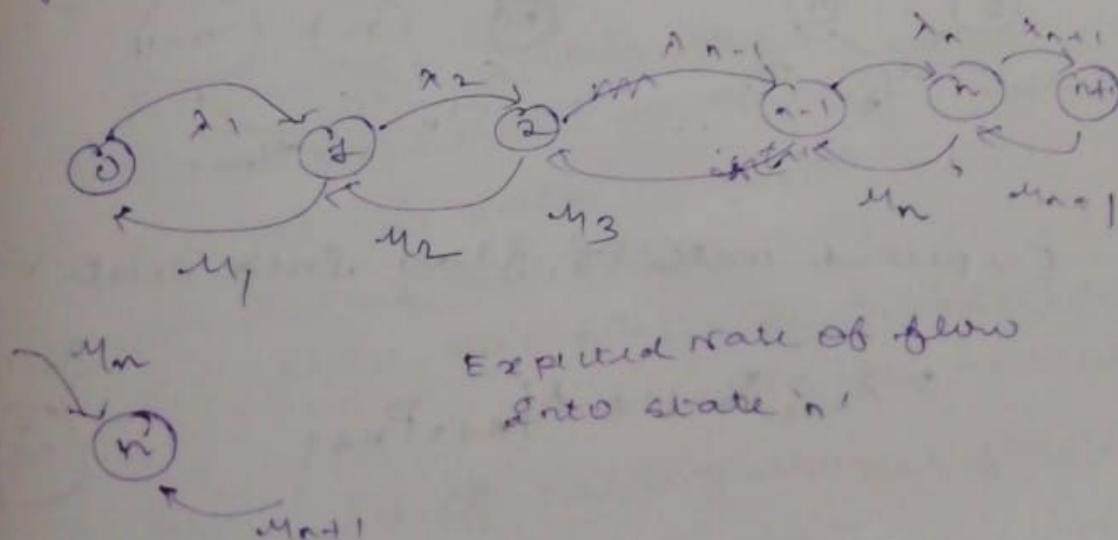 λ1 λ2 λn-1 λn λn+1
0 1 2 n-1 n n+1
μ1 μ2 μ3 μn μn+1
μn
n
μn+1
Expected rate of flow
Into state n'